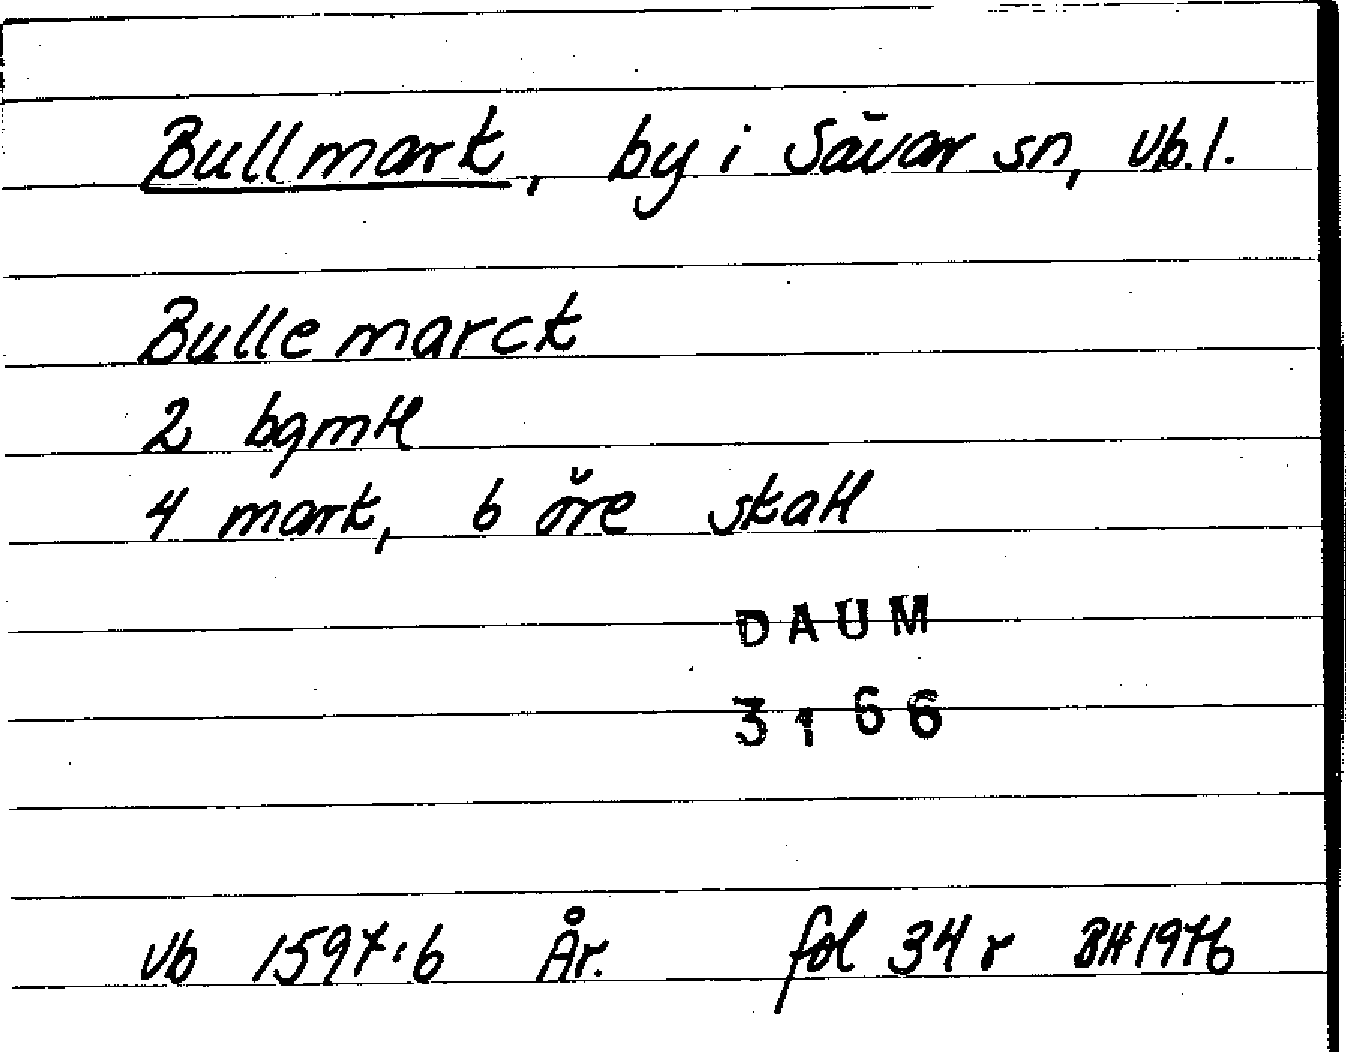 Bullmark, by i Sävar sn, Vb.l.
Bullemarck
2 bgmtl
4 mark, 6 öre skatt
DAUM
3166
Vb 1597:6 År. fol 34 r BH 1976